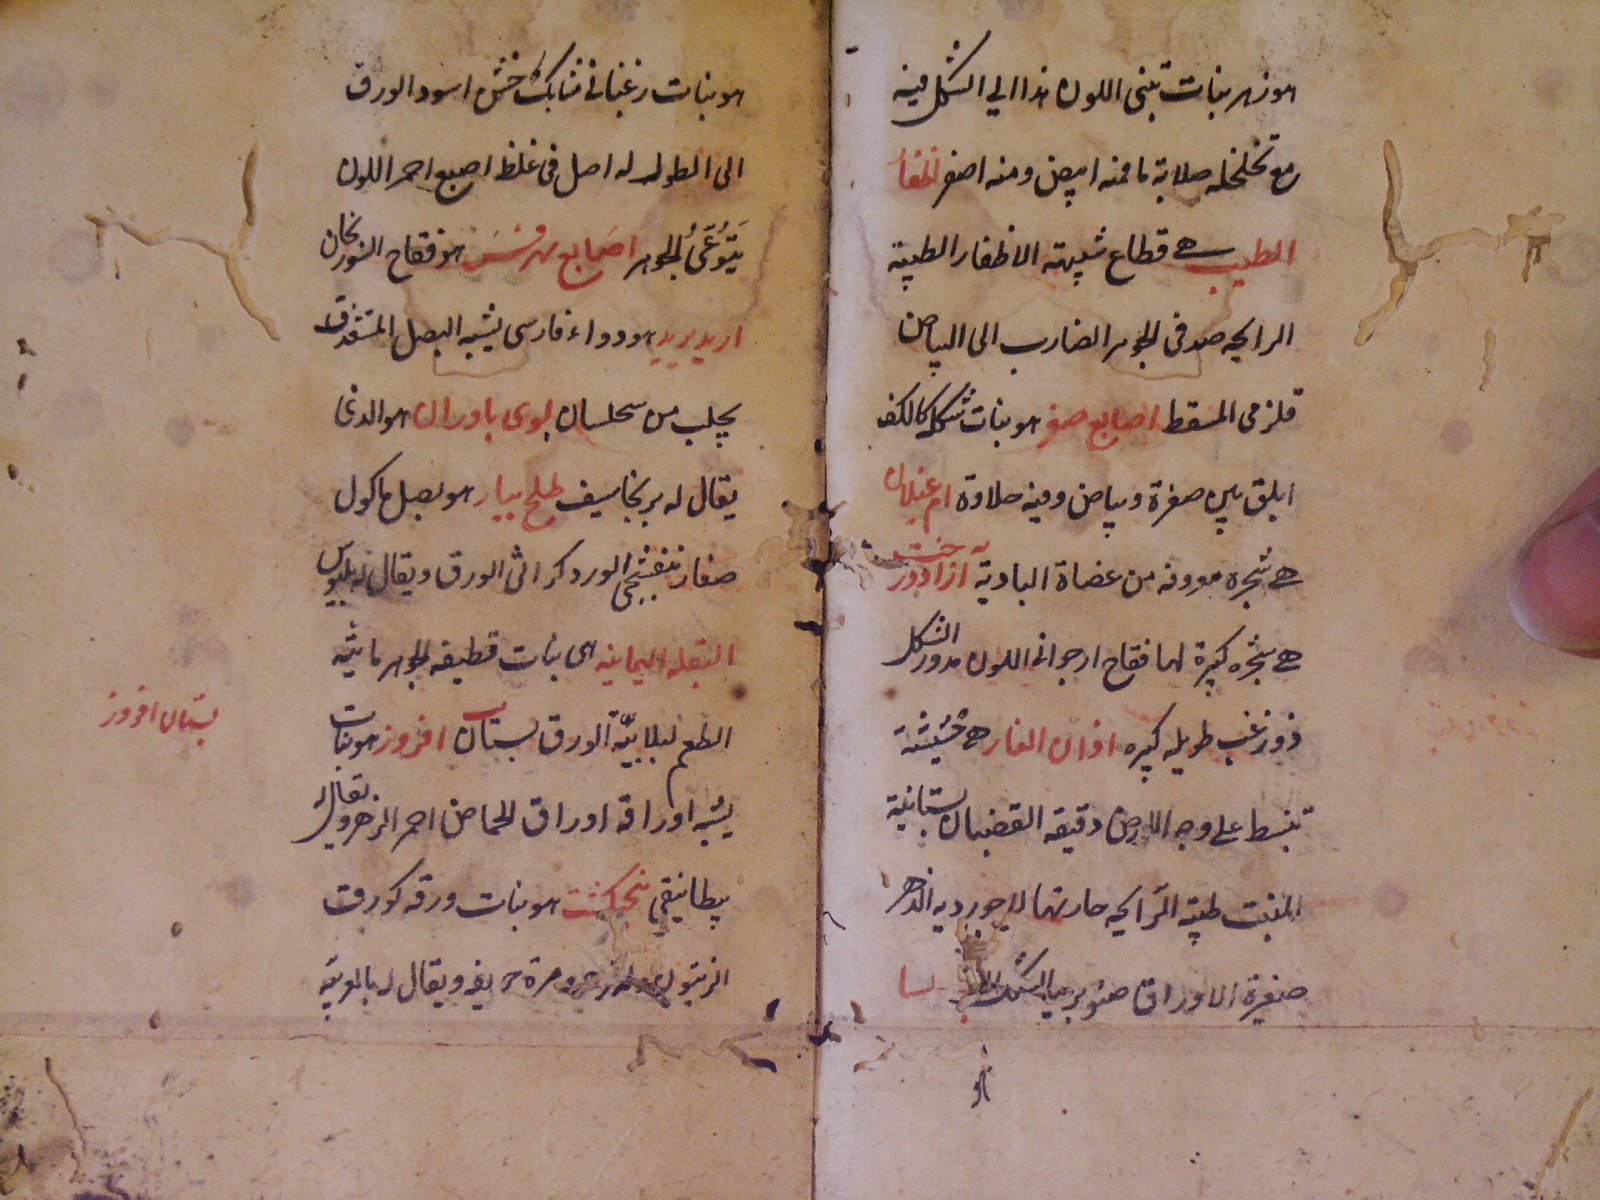 هو زهر نبات تبنى اللون هذا الي الشكل فيه
مع تخلخله صلابة ما فمنه ابيض ومنه اصفر اظفار
الطيب هے قطاع شبيهة الاظفار الطيبة
الرايحه صدفى الجوهر الضارب الى البياض
قلزمى المسقط اصابع صفر هو نبات شكله كالكف
ابلق بين صفرة وبياض وفيه حلاوة ام غيلان
هے شجره معروفه من عضاة البادية آزاد درخت
هے شجره كبيرة لها فقاح ارجوانى اللون مدور الشكل
ذو زغب طويله كبيره اذان الفار هے حشيشة
تنبسط على وجه الارض دقيقه القضبان بستانية
المنبت طيبة الرايحه حار تها لاجورديه الزهر
صغيرة الاوراق صنوبرية الشكل
هو نبات زغبانى متشابك خشن اسود الورق
الى الطول له اصل فى غلظ اصبع احمر اللون
يتوعى الجوهر اصابع هرمس هو فقاح السورنجان
اربد بريد هو دواء فارسى يشبه البصل المشقوق
يجلب من سجلسان بوى باوران هو الذى
يقال له برنجاسيف طلح بيار هو بصل ماكول
صغار بنفسجى الورد كراثى الورق ويقال له بلبوس
البقله اليمانيه هى نبات قطيفه الجوهر مائيه
الطعم لبلابية الورق بستان افروز هو نبات
بستان افروز
يشبه اوراقه اوراق الحماض احمر الزهر ويقال له
بطانيقى پنجنكشت هو نبات ورقه كورق
الزيتون وله زهر ومرة حريفه ويقال له بالعربية